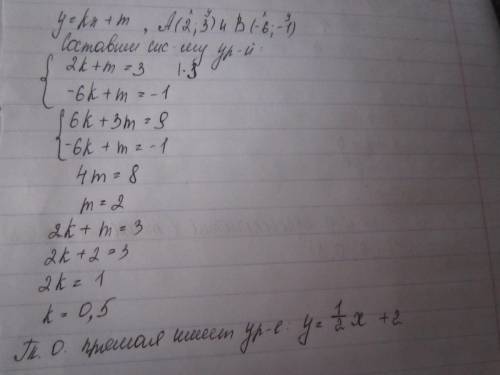 y=kx+m, A(2;3) и B(-6;-1)
x y x y
Составим сис-му ур-й:
{ 2k+m=3 |·3
-6k+m=-1
{ 6k+3m=9
-6k+m=-1
4m=8
m=2
2k+m=3
2k+2=3
2k=1
k=0,5
Т.о. прямая имеет ур-е: y=1/2x+2